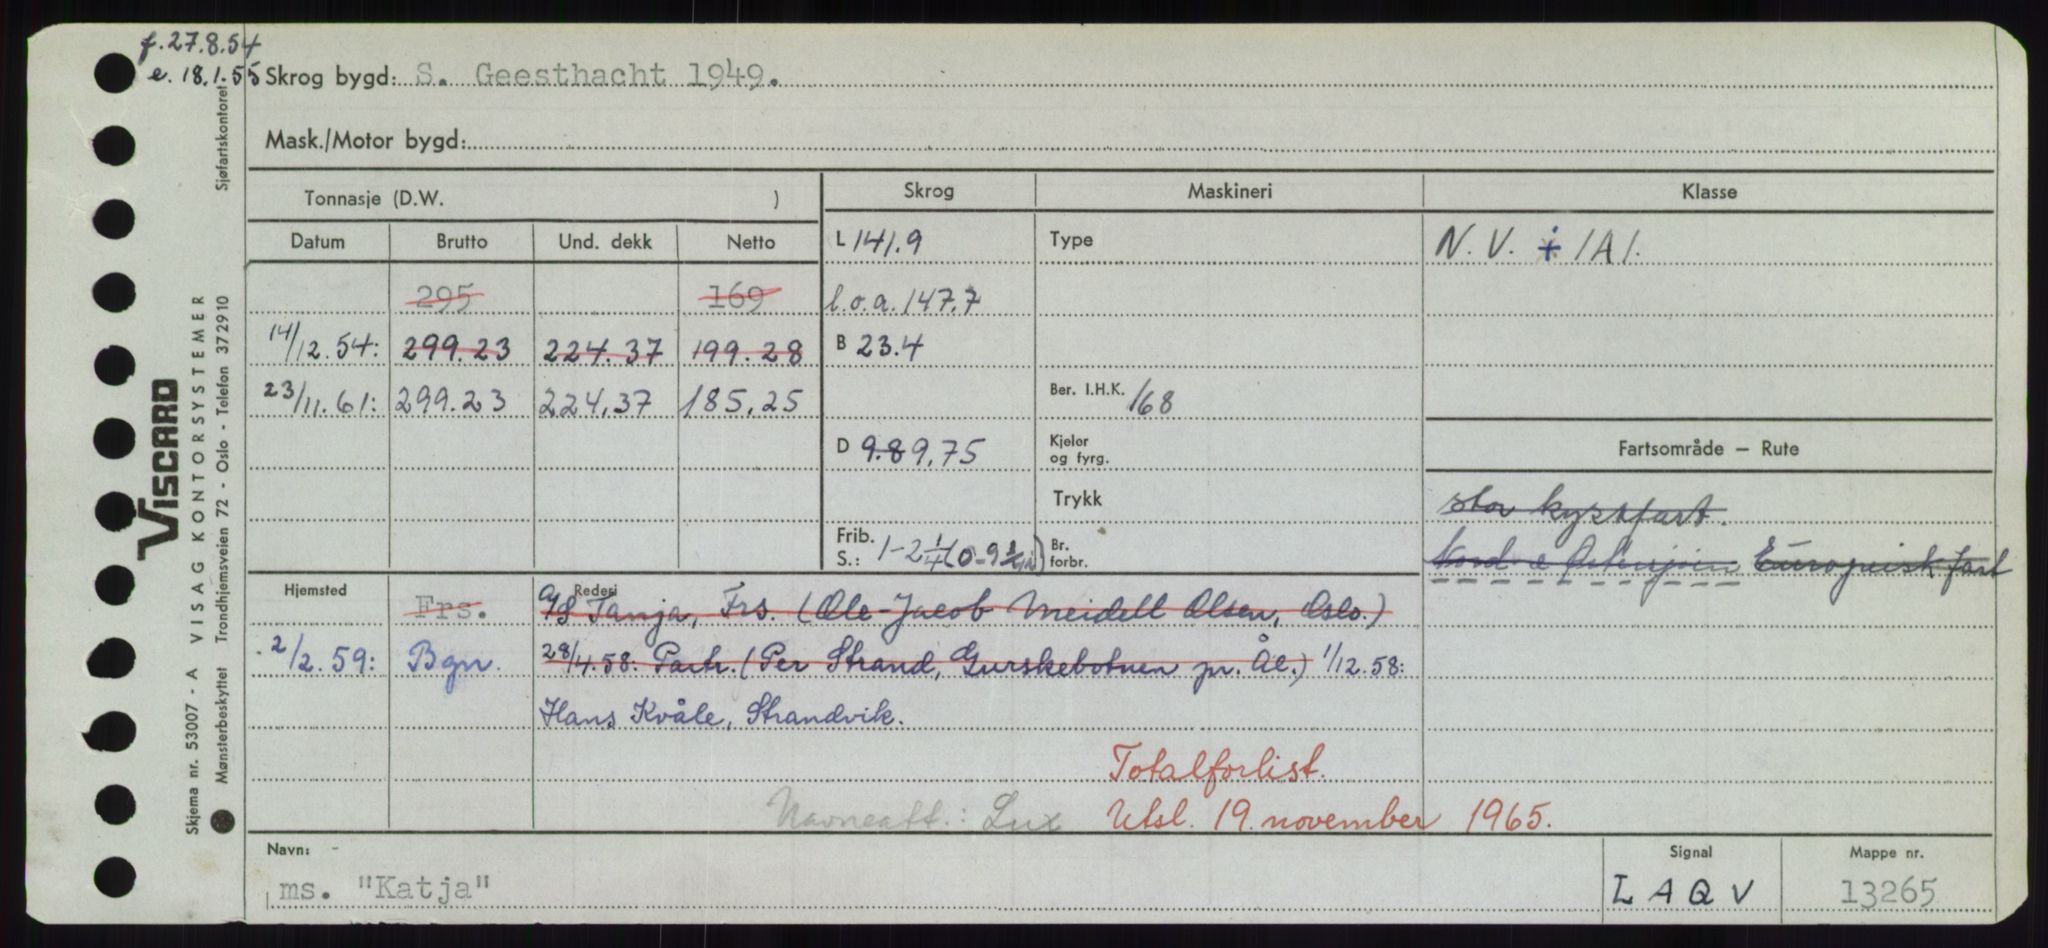 f. 27.8.54
e. 18.1.55 Skrog bygd: S. Geesthacht 1949.
Mask./Motor bygd:
Tonnasje (D.W. ) Skrog Maskineri Klasse
Datum Brutto Und. dekk Netto L 141.9 Type N. V. + 1A1.
295 169 l.o.a. 147.7
14/12.54: 299.23 224.37 199.28 B 23.4
23/11.61: 299.23 224.37 185.25 Ber. I.H.K. 168
D 9.8 9.75 Kjeler og fyrg. Fartsområde – Rute
Trykk stor kystfart.
Frib. S.: 1-2 1/4 (0-9 Br. forbr. Europeisk fart
Hjemsted Rederi
Frs. A/S Tanja, Frs. (Ole-Jacob Meidell Olsen, Oslo.)
2/2.59: Bgn. 28/4.58: Partr. (Per Strand, Gurskebotnen pr. Ål.) 1/12.58:
Hans Kvåle, Strandvik.
Totalforlist.
Navneatt.: Lux Utsl. 19. november 1965.
Navn: Signal Mappe nr.
ms. "Katja" LAQV 13265
VISCARD
VISAG KONTORSYSTEMER
Skjema nr. 53007 - A
Sjøfartskontoret
Trondhjemsveien 72 - Oslo - Telefon 372910
Mønsterbeskyttet